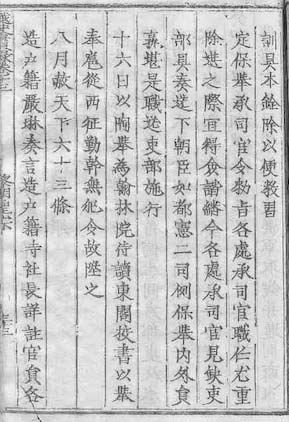 訓具本銓除以便教習
定保舉承司官令勅旨各處承司官職任尤重
除授之際宜得僉諧繼今各處承司官見缺吏
部具奏送下朝臣如都憲二司例保舉內外員
堪是職送吏部施行
十六日以陶舉為翰林院侍讀東閣校書以舉
奉扈從西征勤幹無犯令故陞之
八月赦天下六十三條
造户籍嚴琳奏言造户籍寺社長詳註官員各